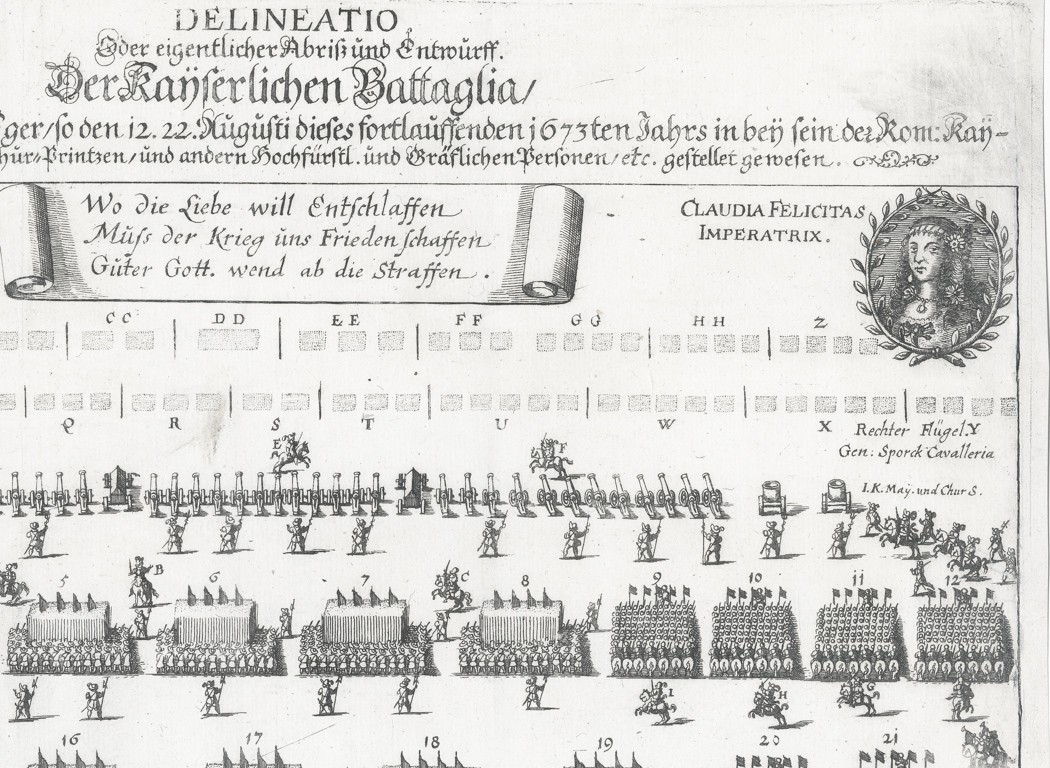 DELINEATIO
Oder eigentlicher Abriß und Entwurff.
Der Kaÿserlichen Battaglia/
ger/so den 12. 22. Augusti dieses fortlauffenden 1673ten Jahrs in beÿ sein der Rom: Kaÿ-
hur-Printzen/und andern Hochfürstl. und Gräflichen Personen/etc. gestellet gewesen.
Wo die Liebe will Entschlaffen
Muss der Krieg uns Frieden schaffen
Guter Gott. wend ab die Straffen.
CLAUDIA FELICITAS
IMPERATRIX.
CC DD EE FF GG HH Z
Q R S T U W X Rechter Flügel. Y
Gen: Sporck Cavalleria
E F
I.K. Maÿ. und Chur S.
5 B 6 7 C 8 9 10 11 12
I H G
16 17 18 19 20 21